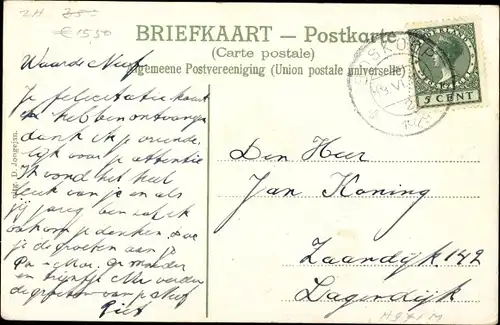 2H 25-
€15,50
BRIEFKAART – Postkarte
(Carte postale)
Algemeene Postvereeniging (Union postale universelle)
NEDERLAND
5 CENT
Waarde Neef
Je felicitatie kaart
heb ik ontvangen
dank je vriende
lijk voor je attentie
Ik vond het heel
leuk van je en als
jij jarig ben zal ik
ook om je denken
je de groeten aan je
Pa en Moe, Grootmoeder
en verder
de groeten van je Neef
Piet
uitg. D. Jongejan.
Den Heer
Jan Koning
Zaandijk 142
Lagendijk